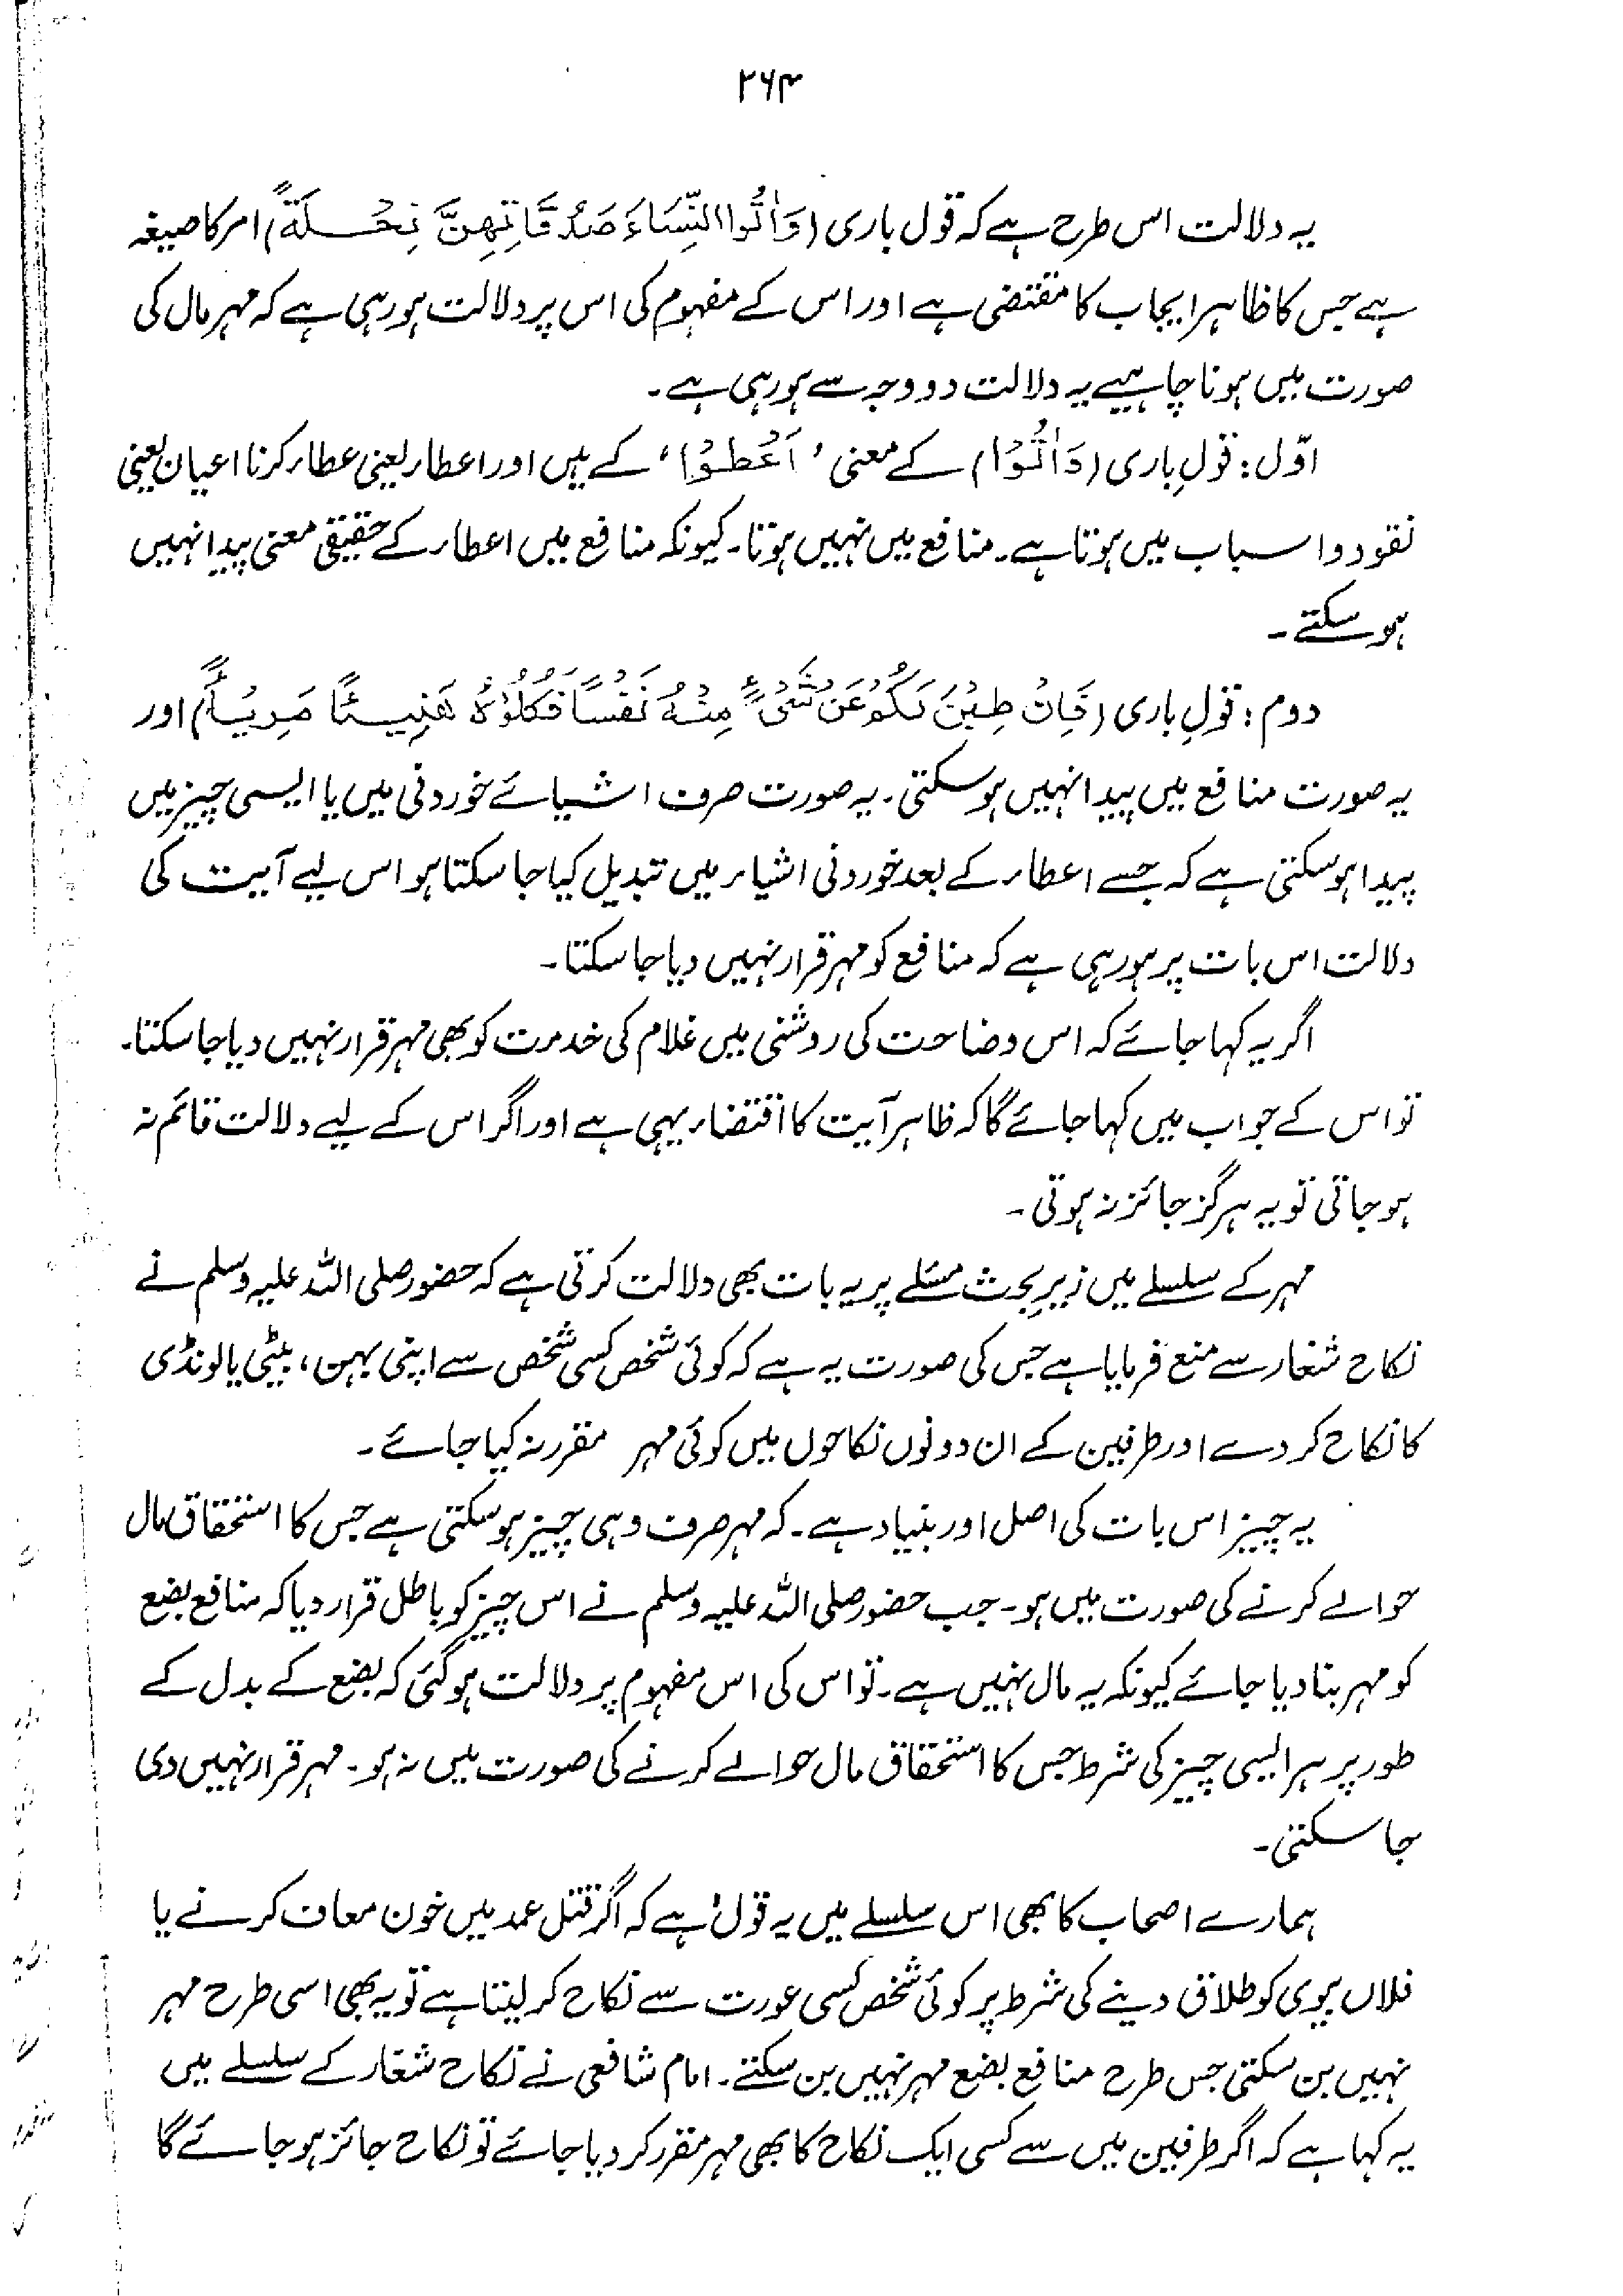 ۲۶۴
یہ دلالت اس طرح ہے کہ قول باری (وَاٰتُوا النِّسَاءَ صَدُقَاتِهِنَّ نِحْلَةً) امر کا صیغہ
ہے جس کا ظاہر ایجاب کا مقتضی ہے اور اس کے مفہوم کی اس پر دلالت ہو رہی ہے کہ مہر مال کی
صورت میں ہونا چاہیئے یہ دلالت دو وجہ سے ہو رہی ہے۔
اوّل: قولِ باری (وَاٰتُوْا) کے معنی ’اَعْطُوْا‘ کے ہیں اور اعطاء یعنی عطاء کرنا اعیان یعنی
نقود و اسباب میں ہوتا ہے۔ منافع میں نہیں ہوتا۔ کیونکہ منافع میں اعطاء کے حقیقی معنی پیدا نہیں
ہو سکتے۔
دوم: قولِ باری (فَاِنْ طِبْنَ لَكُمْ عَنْ شَیْءٍ مِنْهُ نَفْسًا فَكُلُوْهُ هَنِيْئًا مَرِيْئًا) اور
یہ صورت منافع میں پیدا نہیں ہو سکتی۔ یہ صورت صرف اشیائے خوردنی میں یا ایسی چیز میں
پیدا ہو سکتی ہے کہ جسے اعطاء کے بعد خوردنی اشیاء میں تبدیل کیا جا سکتا ہو اس لیے آیت کی
دلالت اس بات پر ہو رہی ہے کہ منافع کو مہر قرار نہیں دیا جا سکتا۔
اگر یہ کہا جائے کہ اس وضاحت کی روشنی میں غلام کی خدمت کو بھی مہر قرار نہیں دیا جا سکتا۔
تو اس کے جواب میں کہا جائے گا کہ ظاہر آیت کا اقتضاء یہی ہے اور اگر اس کے لیے دلالت قائم نہ
ہو جاتی تو یہ ہرگز جائز نہ ہوتی۔
مہر کے سلسلے میں زیرِ بحث مسئلے پر یہ بات بھی دلالت کرتی ہے کہ حضور صلی اللہ علیہ وسلم نے
نکاح شغار سے منع فرمایا ہے جس کی صورت یہ ہے کہ کوئی شخص کسی شخص سے اپنی بہن، بیٹی یا لونڈی
کا نکاح کر دے اور طرفین کے ان دونوں نکاحوں میں کوئی مہر مقرر نہ کیا جائے۔
یہ چیز اس بات کی اصل اور بنیاد ہے۔ کہ مہر صرف وہی چیز ہو سکتی ہے جس کا استحقاق مال
حوالے کرنے کی صورت میں ہو۔ جب حضور صلی اللہ علیہ وسلم نے اس چیز کو باطل قرار دیا کہ منافع بضع
کو مہر بنا دیا جائے کیونکہ یہ مال نہیں ہے۔ تو اس کی اس مفہوم پر دلالت ہو گئی کہ بضع کے بدل کے
طور پر ہر ایسی چیز کی شرط جس کا استحقاق مال حوالے کرنے کی صورت میں نہ ہو۔ مہر قرار نہیں دی
جا سکتی۔
ہمارے اصحاب کا بھی اس سلسلے میں یہ قول ہے کہ اگر قتل عمد میں خون معاف کرنے یا
فلاں بیوی کو طلاق دینے کی شرط پر کوئی شخص کسی عورت سے نکاح کر لیتا ہے تو یہ بھی اسی طرح مہر
نہیں بن سکتی جس طرح منافع بضع مہر نہیں بن سکتے۔ امام شافعی نے نکاح شغار کے سلسلے میں
یہ کہا ہے کہ اگر طرفین میں سے کسی ایک نکاح کا بھی مہر مقرر کر دیا جائے تو نکاح جائز ہو جائے گا